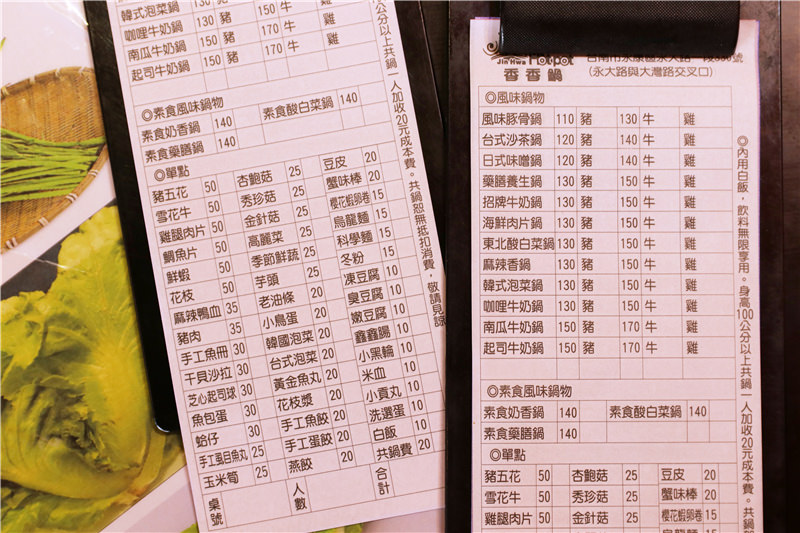 韓式泡菜鍋 130 豬 150 牛 雞
咖哩牛奶鍋 130 豬 150 牛 雞
南瓜牛奶鍋 150 豬 170 牛 雞
起司牛奶鍋 150 豬 170 牛 雞
◎素食風味鍋物
素食奶香鍋 140 素食酸白菜鍋 140
素食藥膳鍋 140
◎單點
豬五花 50 杏鮑菇 25 豆皮 20
雪花牛 50 秀珍菇 25 蟹味棒 20
雞腿肉片 50 金針菇 25 櫻花蝦卵卷 15
鯛魚片 50 高麗菜 25 烏龍麵 15
鮮蝦 50 季節鮮蔬 25 科學麵 15
花枝 50 芋頭 25 冬粉 15
麻辣鴨血 35 老油條 20 凍豆腐 10
豬肉 35 小鳥蛋 20 臭豆腐 10
手工魚冊 30 韓國泡菜 20 嫩豆腐 10
干貝沙拉 30 台式泡菜 20 鑫鑫腸 10
芝心起司球 30 黃金魚丸 20 小黑輪 10
魚包蛋 30 花枝漿 20 米血 10
蛤仔 30 手工魚餃 20 小貢丸 10
手工虱目魚丸 25 手工蛋餃 20 洗選蛋 10
玉米筍 25 燕餃 20 白飯 10
共鍋費 20
桌號 人數 合計
公分以上共鍋一人加收20元成本費。共鍋恕無抵扣消費，敬請見諒
Jin Hwa Hotpot
香香鍋
台南市永康區永大路一段
號
(永大路與大灣路交叉口)
◎風味鍋物
風味豚骨鍋 110 豬 130 牛 雞
台式沙茶鍋 120 豬 140 牛 雞
日式味噌鍋 120 豬 140 牛 雞
藥膳養生鍋 130 豬 150 牛 雞
招牌牛奶鍋 130 豬 150 牛 雞
海鮮肉片鍋 130 豬 150 牛 雞
東北酸白菜鍋 130 豬 150 牛 雞
麻辣香鍋 130 豬 150 牛 雞
韓式泡菜鍋 130 豬 150 牛 雞
咖哩牛奶鍋 130 豬 150 牛 雞
南瓜牛奶鍋 150 豬 170 牛 雞
起司牛奶鍋 150 豬 170 牛 雞
◎素食風味鍋物
素食奶香鍋 140 素食酸白菜鍋 140
素食藥膳鍋 140
◎單點
豬五花 50 杏鮑菇 25 豆皮 20
雪花牛 50 秀珍菇 25 蟹味棒 20
雞腿肉片 50 金針菇 25 櫻花蝦卵卷 15
◎內用白飯，飲料無限享用。身高100公分以上共鍋一人加收20元成本費。共鍋